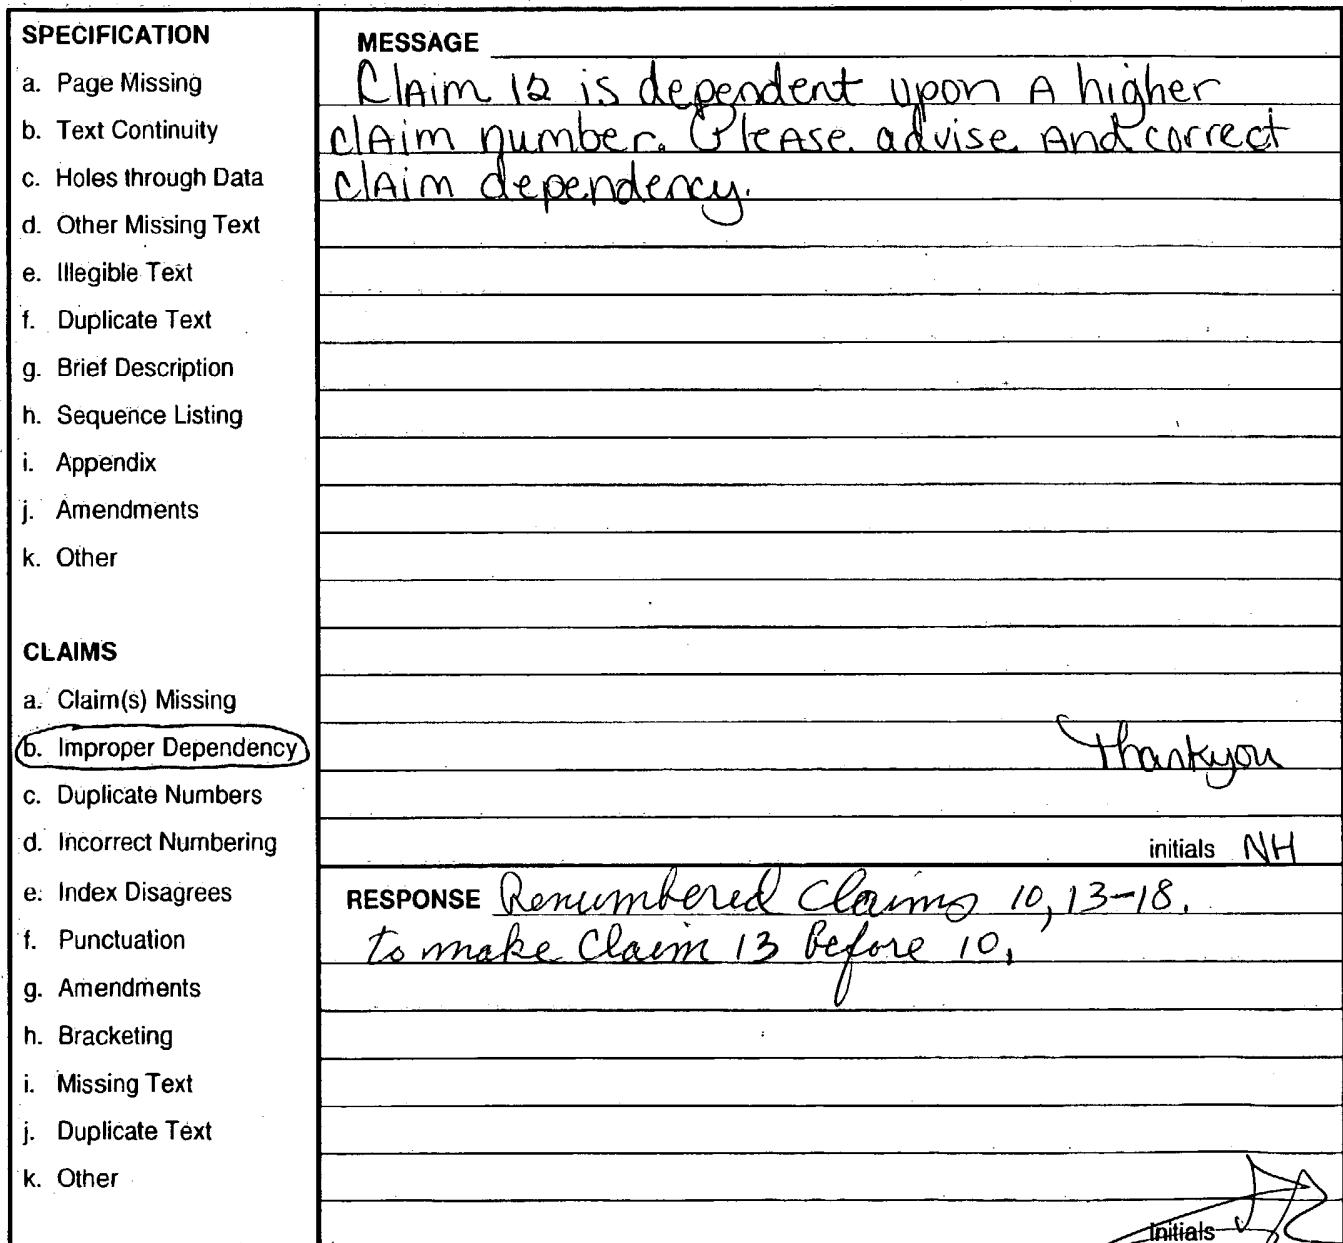 SPECIFICATION
a. Page Missing
b. Text Continuity
c. Holes through Data
d. Other Missing Text
e. Illegible Text
f. Duplicate Text
g. Brief Description
h. Sequence Listing
i. Appendix
j. Amendments
k. Other
CLAIMS
a. Claim(s) Missing
b. Improper Dependency
c. Duplicate Numbers
d. Incorrect Numbering
e. Index Disagrees
f. Punctuation
g. Amendments
h. Bracketing
i. Missing Text
j. Duplicate Text
k. Other
MESSAGE
Claim 12 is dependent upon A higher
claim number. Please advise and correct
claim dependency.
Thankyou
initials NH
RESPONSE Renumbered Claims 10, 13-18.
to make Claim 13 before 10,
initials